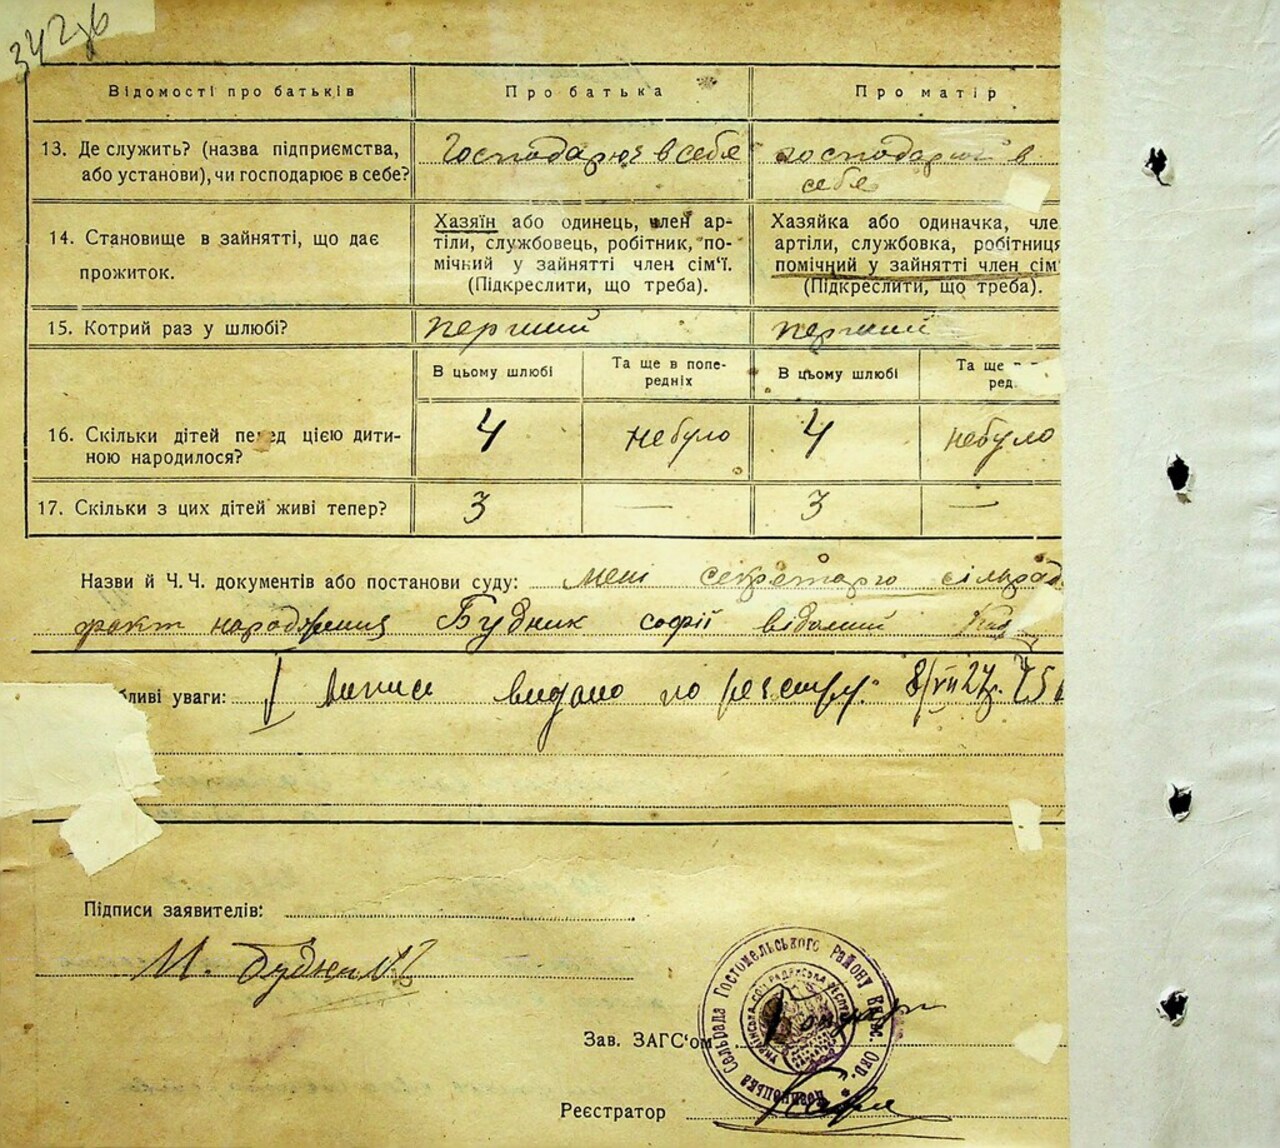 342зв
Відомості про батьків
Про батька
Про матір
13. Де служить? (назва підприємства,
або установи), чи господарює в себе?
Господарює в себе
господарює в
себе
14. Становище в зайнятті, що дає
прожиток.
Хазяїн або одинець, член ар-
тіли, службовець, робітник, по-
мічний у зайнятті член сім'ї.
(Підкреслити, що треба).
Хазяйка або одиначка, чле
артіли, службовка, робітниця
помічний у зайнятті член сім'
(Підкреслити, що треба).
15. Котрий раз у шлюбі?
перший
перший
В цьому шлюбі
Та ще в попе-
редніх
В цьому шлюбі
Та ще
ред.
16. Скільки дітей перед цією дити-
ною народилося?
4
небуло
4
небуло
17. Скільки з цих дітей живі тепер?
3
—
3
—
Назви й Ч. Ч. документів або постанови суду: мені секретарю сільрад
факт народження Будник софії відомий
бливі уваги: виписи видано по реєстру: 8/VII 27р.
Підписи заявителів:
И. Будник
Зав. ЗАГС'ом
Реєстратор
Сельрада Гостомельського Району Київс. Окр.